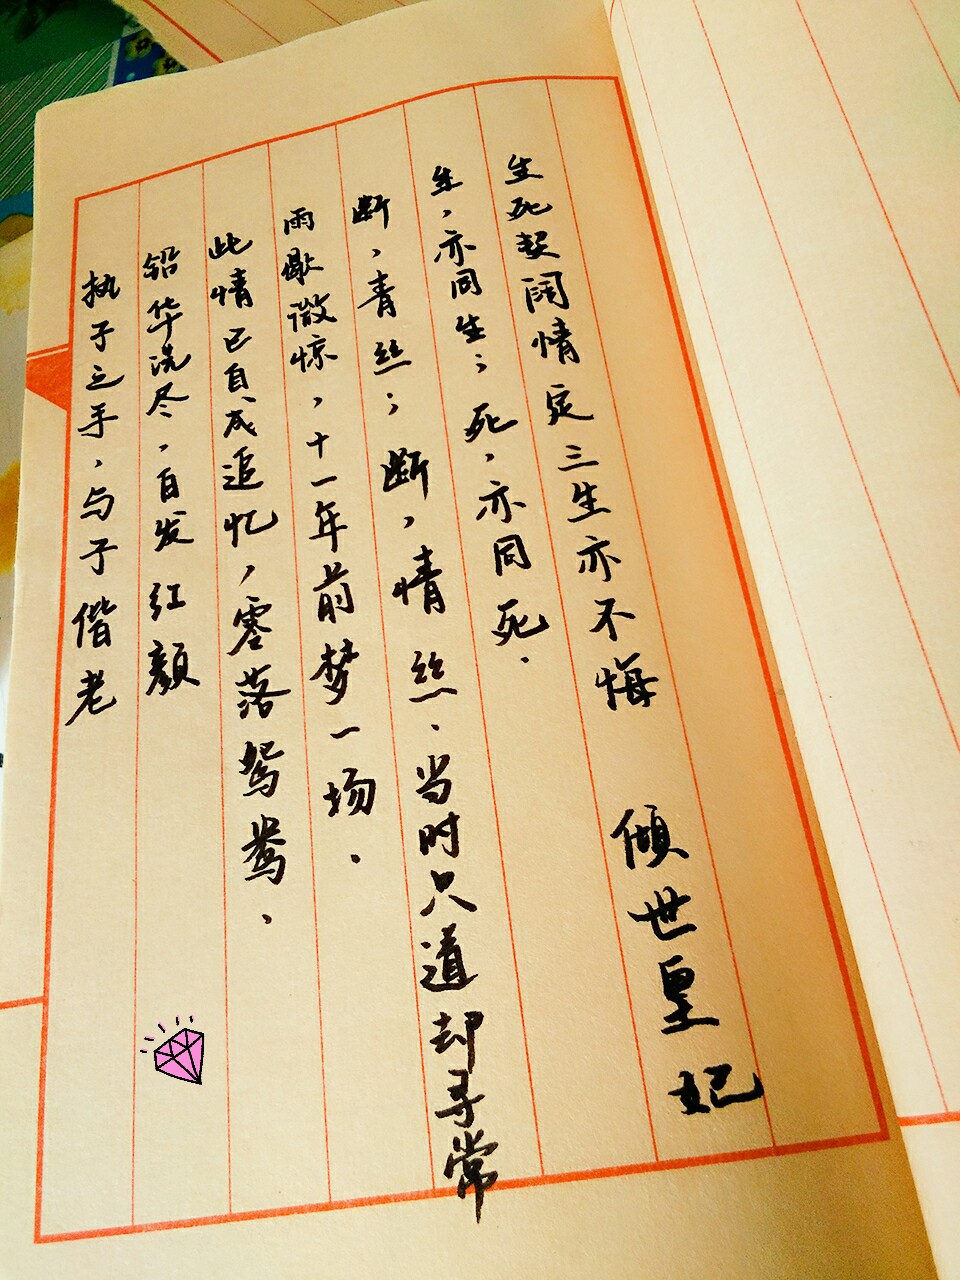 生死契阔情定三生亦不悔 倾世皇妃
生，亦同生；死，亦同死.
断，青丝；断，情丝、当时只道却寻常
雨歇微惊，十一年前梦一场.
此情已自成追忆，零落鸳鸯、
铅华洗尽，自发红颜
执子之手，与子偕老